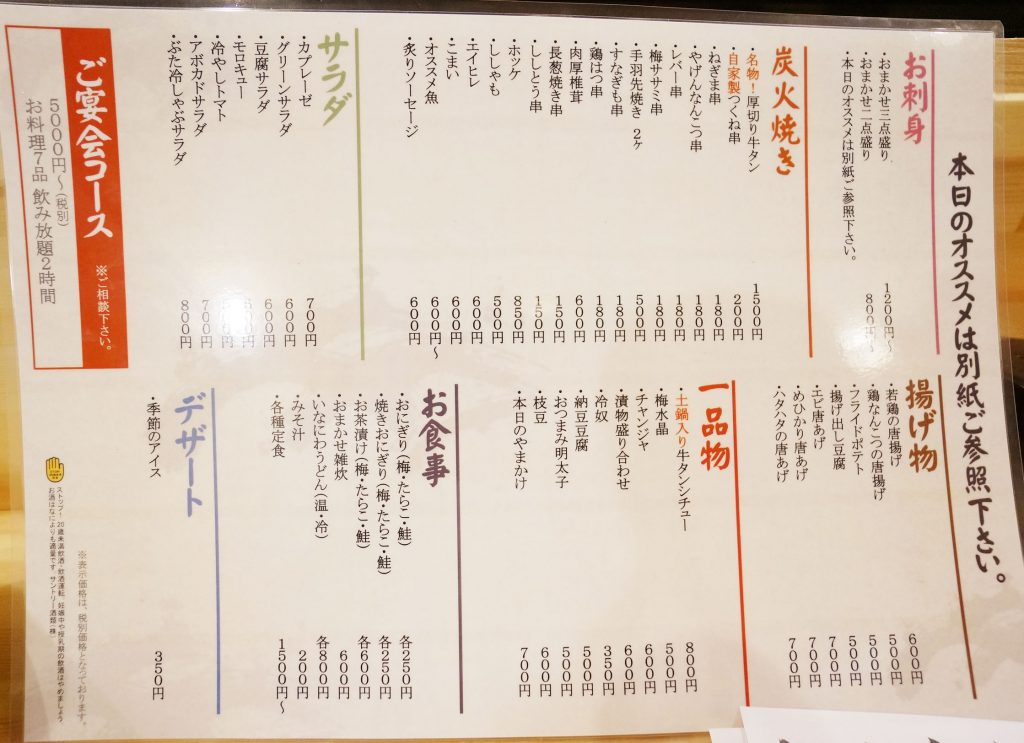 本日のオススメは別紙ご参照下さい。
お刺身
・おまかせ三点盛り 1200円〜
・おまかせ二点盛り 800円〜
・本日のオススメは別紙ご参照下さい。
炭火焼き
・名物!厚切り牛タン 1500円
・自家製つくね串 200円
・ねぎま串 180円
・やげんなんこつ串 180円
・レバー串 180円
・梅ササミ串 180円
・手羽先焼き 2ヶ 500円
・すなぎも串 180円
・鶏はつ串 180円
・肉厚椎茸 600円
・長葱焼き串 150円
・ししとう串 150円
・ホッケ 850円
・ししゃも 500円
・エイヒレ 600円
・こまい 600円
・オススメ魚 600円〜
・炙りソーセージ 600円
サラダ
・カプレーゼ 700円
・グリーンサラダ 600円
・豆腐サラダ 600円
・モロキュー
・冷やしトマト
・アボカドサラダ 700円
・ぶた冷しゃぶサラダ 800円
ご宴会コース ※ご相談下さい。
5000円〜(税別)
お料理7品 飲み放題2時間
揚げ物
・若鶏の唐揚げ 600円
・鶏なんこつの唐揚げ 500円
・フライドポテト 500円
・揚げ出し豆腐 500円
・エビ唐あげ 700円
・めひかり唐あげ 700円
・ハタハタの唐あげ 700円
一品物
・土鍋入り牛タンシチュー 800円
・梅水晶 500円
・チャンジャ 600円
・漬物盛り合わせ 600円
・冷奴 350円
・納豆豆腐 500円
・おつまみ明太子 500円
・枝豆 600円
・本日のやまかけ 700円
お食事
・おにぎり(梅・たらこ・鮭) 各250円
・焼きおにぎり(梅・たらこ・鮭) 各250円
・お茶漬け(梅・たらこ・鮭) 各600円
・おまかせ雑炊 600円
・いなにわうどん(温・冷) 各800円
・みそ汁 200円
・各種定食 1500円〜
デザート
・季節のアイス 350円
※表示価格は、税別価格となっております。
ストップ!20歳未満飲酒・飲酒運転。妊娠中や授乳期の飲酒はやめましょう。
お酒はなによりも適量です。サントリー酒類(株)